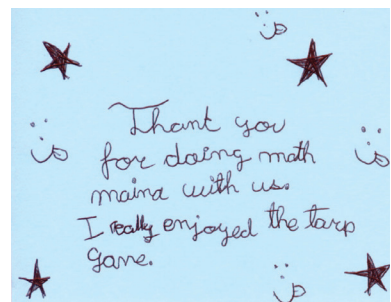 Thant you
for doing math
maina with us.
I really enjoyed the tarp
game.